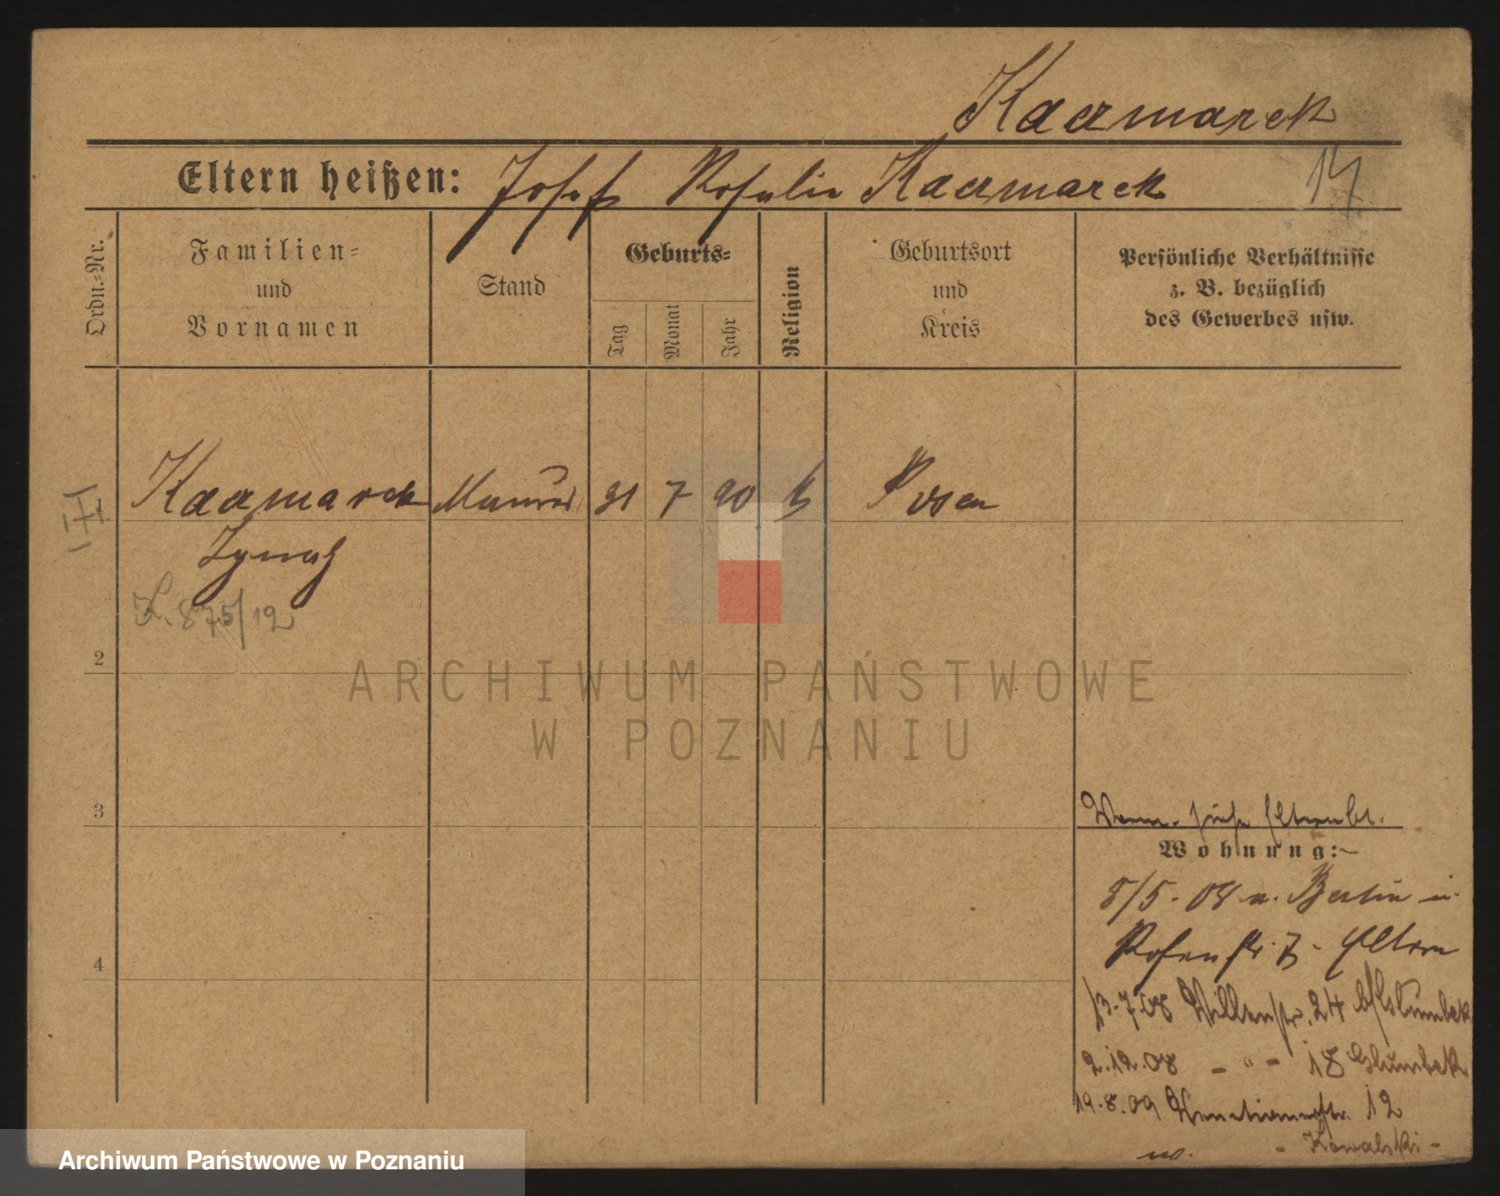 Kaczmarek
Eltern heißen: Josef Rosalie Kaczmarek
14
Ordn.-Nr.
Familien-
und
Vornamen
Stand
Geburts-
Tag
Monat
Jahr
Religion
Geburtsort
und
Kreis
Persönliche Verhältnisse
z. B. bezüglich
des Gewerbes usw.
Kaczmarek Maurer 31 7 90 k Posen
Ignatz
K. 875/12
2
3
4
Wohnung:
8/5. 08 a. Berlin
Rosenstr. 7. Eltern
13.7.08 24
2.12.08 - " - 18
19.8.09 Venetianerstr. 12
w. - Kowalski -
ARCHIWUM PAŃSTWOWE
W POZNANIU
Archiwum Państwowe w Poznaniu